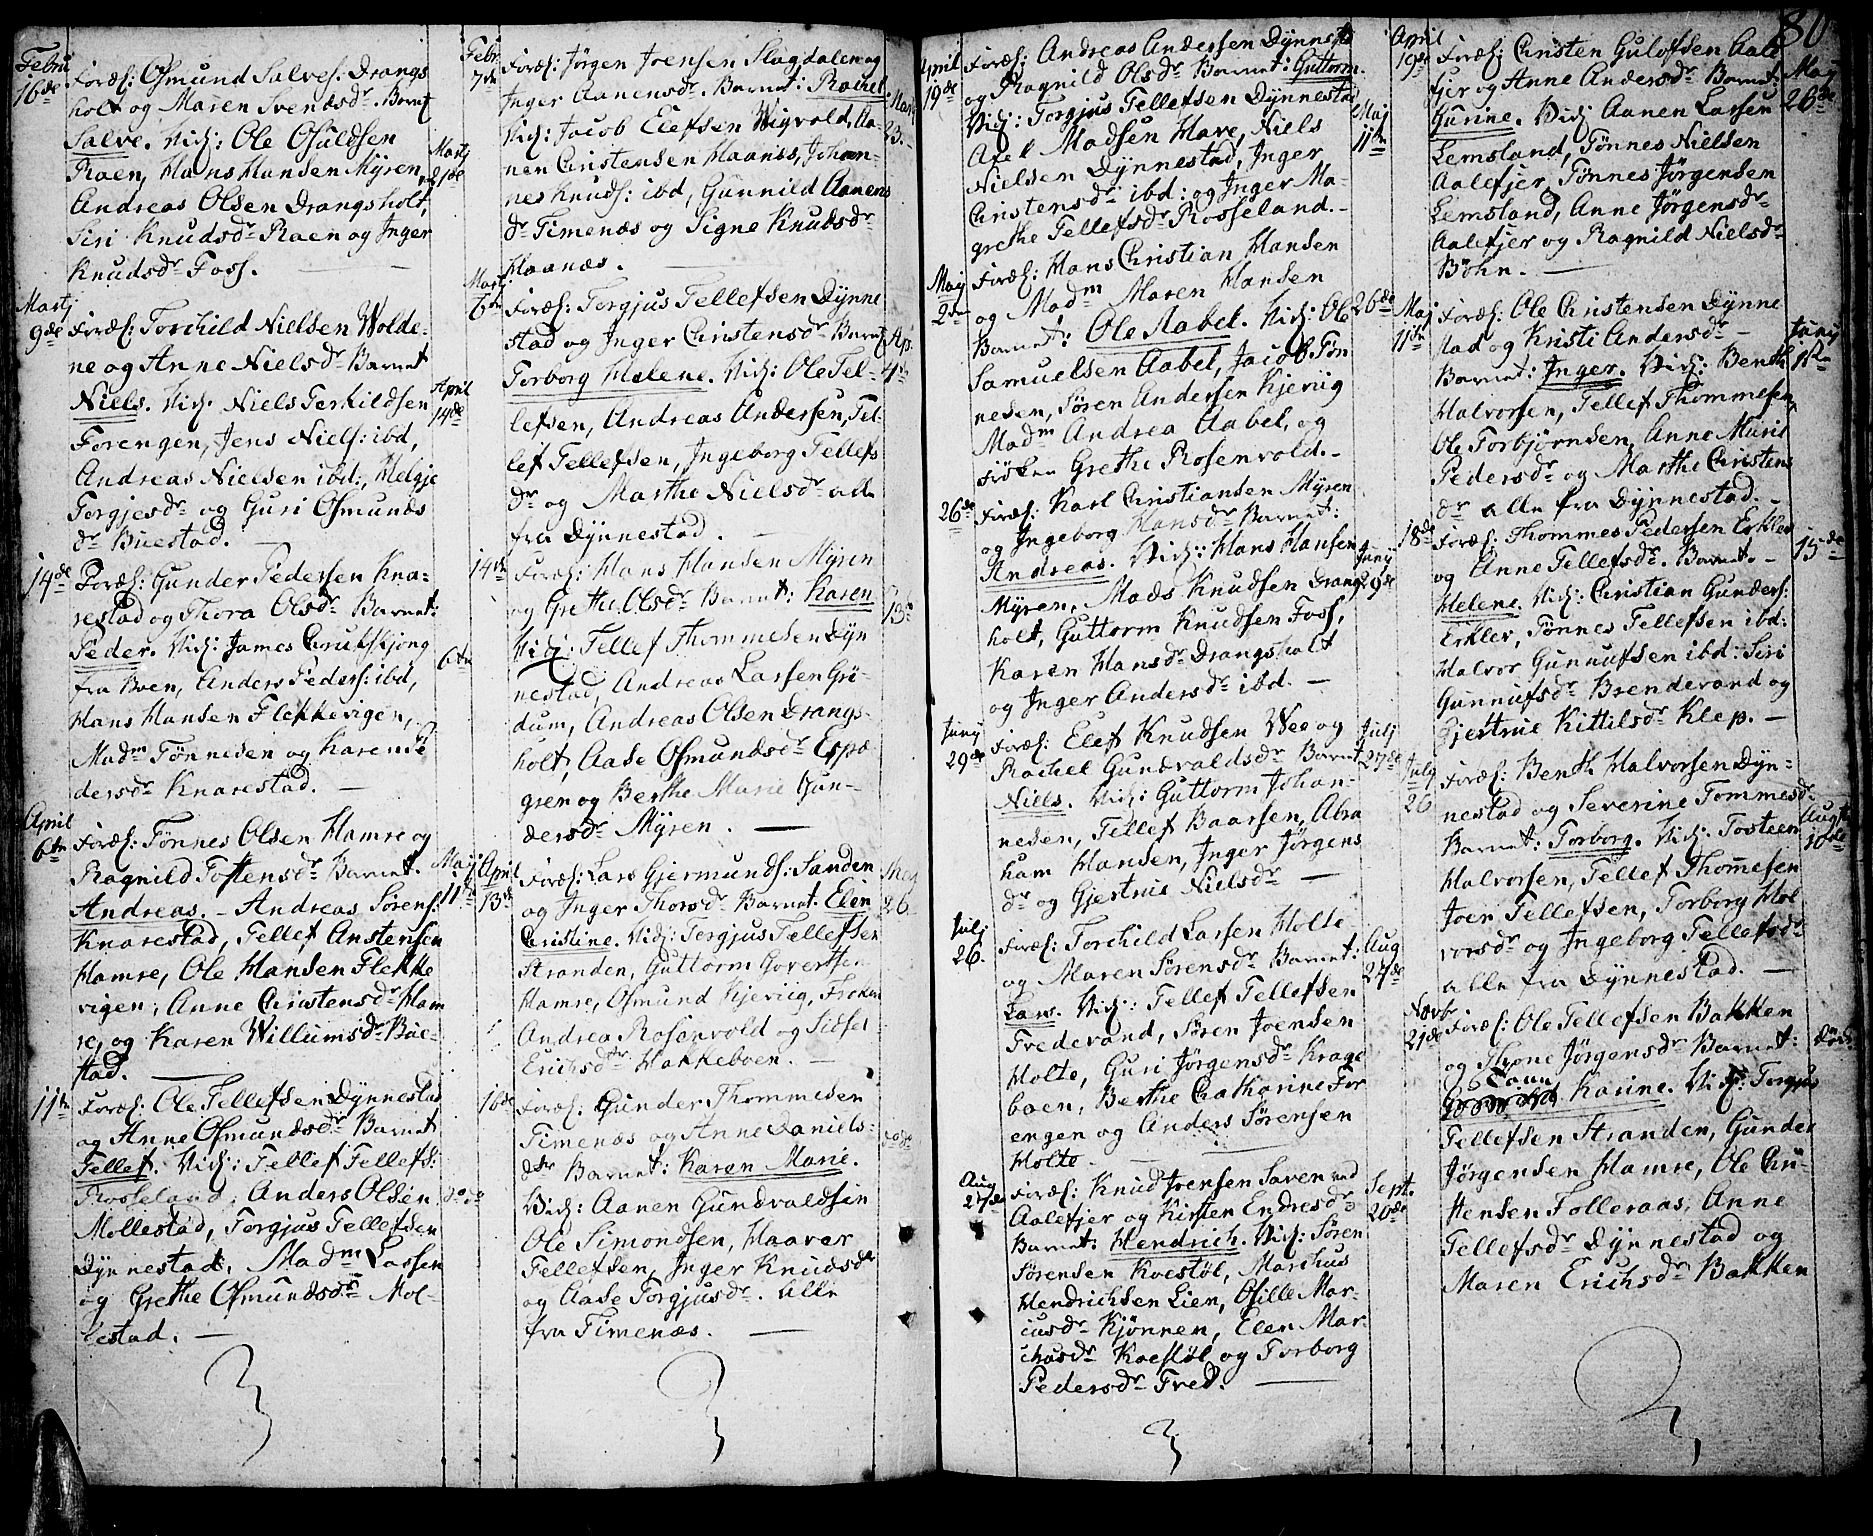 80
Febru
16de
Foræl: Osmund Salves: Drangs
holt og Maren Svendsdr. Barnet
Salve. Vid: Ole Osuldsen
Raen, Hans Hansen Myren,
Andreas Olsen Drangsholt,
Siri Knudsdr Raen og Inger
Knudsdr Foss.
Martj
21de
Martj
9de
Foræl: Torchild Nielsen Wolde-
ne og Anne Nielsdr Barnet
Niels. Vid: Niels Terkildsen
Forengen, Jens Niels: ibd,
Andreas Nielsen ibd:, Helgje
Torgjesdr og Guri Osmunds
dr Buestad.
April
14de
14de
Foræl: Gunder Pedersen Kna-
restad og Thora Olsdr Barnet:
Peder. Vid: James
fra Boen, Anders Peders: ibd,
Hans Hansen Flekkevigen,
Madm Tønnesen og Karen Pe
dersdr Knarestad.
6te
April
6te
Foræl: Tønnes Olsen Hamre og
Ragnild Tostensdr Barnet.
Andreas. - Andreas Sørens:
Knarestad, Tellef Anstensen
Hamre, Ole Hansen Flekke
vigen, Anne Christensdr Ham
re, og Karen Willumsdr Bue-
stad.
Maij
11te
11te
Foræl: Ole Tellefsen Dynnestad
og Anne Osmundsdr Barnet
Tellef. Vid: Tellef Tellefs:
Rosseland, Anders Olsen
Mollestad, Torgjus Tellefsen
Dynnestad, Madm Lassen
og Grethe Osmundsdr Mol-
lestad.
do do
Febr
7de
Foræl: Jørgen Joensen Slogdalen og
Inger Aanensdr. Barnet: Rachel.
Vid: Jacob Elefsen Wigvold, Aa-
nen Christensen Haanes, Johan-
nes Knuds: ibd, Gunnild Aanens
dr Timenæs og Signe Knudsdr
Haanæs.
Martj
23.
Martj
6te
Foræl: Torgjus Tellefsen Dynne
stad og Inger Christensdr Barnet
Torborg Helene. Vid: Ole Tel-
lefsen, Andreas Andersen, Tel-
lef Tellefsen, Ingeborg Tellefs
dr og Marthe Nielsdr alle
fra Dynnestad.
Ap.
4de
14de
Foræl: Hans Hansen Myren
og Grethe Olsdr Barnet: Karen
Vid: Tellef Thommesen Dyn
nestad, Andreas Larsen Gri-
dum, Andreas Olsen Drangs-
holt, Aase Osmundsdr Espe-
gren og Berthe Marie Gun-
dersdr Myren.
13de
April
13de
Foræl: Lars Gjermunds: Sanden
og Inger Thorsdr Barnet. Elen
Christine. Vid: Torgjus Tellefsen
Stranden, Guttorm Govertsen
Hamre, Osmund Kjeviig, Frøken
Andrea Rosenvold og Sidsel
Erichsdr Hakkeboen.
Maj
26.
16de
Foræl: Gunder Thommesen
Timenæs og Anne Daniels-
dtr Barnet: Karen Marie.
Vid: Aanen Gundvaldsen
Ole Simondsen, Haaver
Tellefsen, Inger Knudsdr
og Aase Torgjusdr. alle
fra Timenæs.
do do
April
19de
Foræl: Andreas Andersen Dynnestd
og Ragnild Olsdr Barnet: Guttorm.
Vid: Torgjus Tellefsen Dynnestad
Axel Madsen Have, Niels
Nielsen Dynnestad, Inger
Christensdr ibd: og Inger Ma-
grethe Tellefsdr Rosseland.
Maj
11te
Maij
2de
Foræl: Hans Christian Hansen
og Madm Maren Hansen
Barnet: Ole Aabel. Vid: Ole
Samuelsen Aabel, Jacob Tøn
nesen, Søren Andersen Kjeviig
Madm Andrea Aabel, og
Frøken Grethe Rosenvold.
26de
26de
Foræl: Karl Christiansen Myren
og Ingeborg Hansdr Barnet:
Andreas. Vid: Hans Hansen
Myren, Mads Knudsen Drangs
holt, Guttorm Knudsen Foss,
Karen Hansdr Drangsholt
og Inger Andersdr ibd.
Junij
29de
Juny
29de
Foræl: Elef Knudsen Wee og
Rachel Gundvaldsdr Barnet
Niels. Vid: Guttorm Johan-
nesen, Tellef Baarsen, Abra
ham Hansen, Inger Jørgens
dr og Gjertrue Nielsdr
Julj
27de
Julj
26.
Foræl: Torchild Larsen Holte
og Maren Sørensdr Barnet:
Lars. Vid: Tellef Tellefsen
Frederand, Søren Joensen
Holte, Guri Jørgensdr Krage
boen, Berthe Catharine For
engen og Anders Sørensen
Holte.
Aug
27de
Aug
27de
Foræl: Knud Joensen
Aalefjer og Kirsten Endresdr
Barnet: Hendrich. Vid: Søren
Sørensen Koestøl, Marchus
Hendrichsen Lien, Osille Mar-
cusdr Kjønnen, Elen Mar-
chusdr Koestøl og Torborg
Pedersdr Fred.
Sept.
20de
April
19de
Foræl: Christen Gulofsen Aale
fjer og Anne Andersdr Barnet
Gurine. Vid: Aanen Larsen
Lemsland, Tønnes Nielsen
Aalefjer, Tønnes Jørgensen
Lemsland, Anne Jørgensdr
Aalefjer og Ragnild Nielsdr
Bøhn.
Maij
26de
Maj
11te
Foræl: Ole Christensen Dynne
stad og Kristi Andersdr
Barnet: Inger. Vid: Benth
Halvorsen, Tellef Thommesen,
Ole Torbjørnsen, Anne Marie
Pedersdr og Marthe Christens
dr alle fra Dynnestad.
Junij
1te
18de
Foræl: Thommes Pedersen Erkler
og Anne Tellefsdr. Barnet
Helene. Vid: Christian Gunders:
Erkler, Tønnes Tellefsen ibd:
Halvor Gunnufsen ibd: Siri
Gunnufsdr Brenderand og
Gjertrue Kittilsdr Klep.
15de
July
26
Foræl: Benth Halvorsen Dyn-
nestad og Severine Tommesdr
Barnet: Torborg. Vid: Tosteen
Halvorsen, Tellef Thommesen
Joen Tellefsen, Torborg Hal
vorsdr og Ingeborg Tellefsdr
alle fra Dynnestad.
Augst
10de
Novbr
21de
Foræl: Ole Tellefsen Bakken
og Throne Jørgensdr Barnet:
Karine. Vid: Torgjus
Tellefsen Stranden, Gunder
Jørgensen Hamre, Ole Chri-
stensen Folleraas, Anne
Tellefsdr Dynnestad og
Maren Erichsdr Bakken
død.